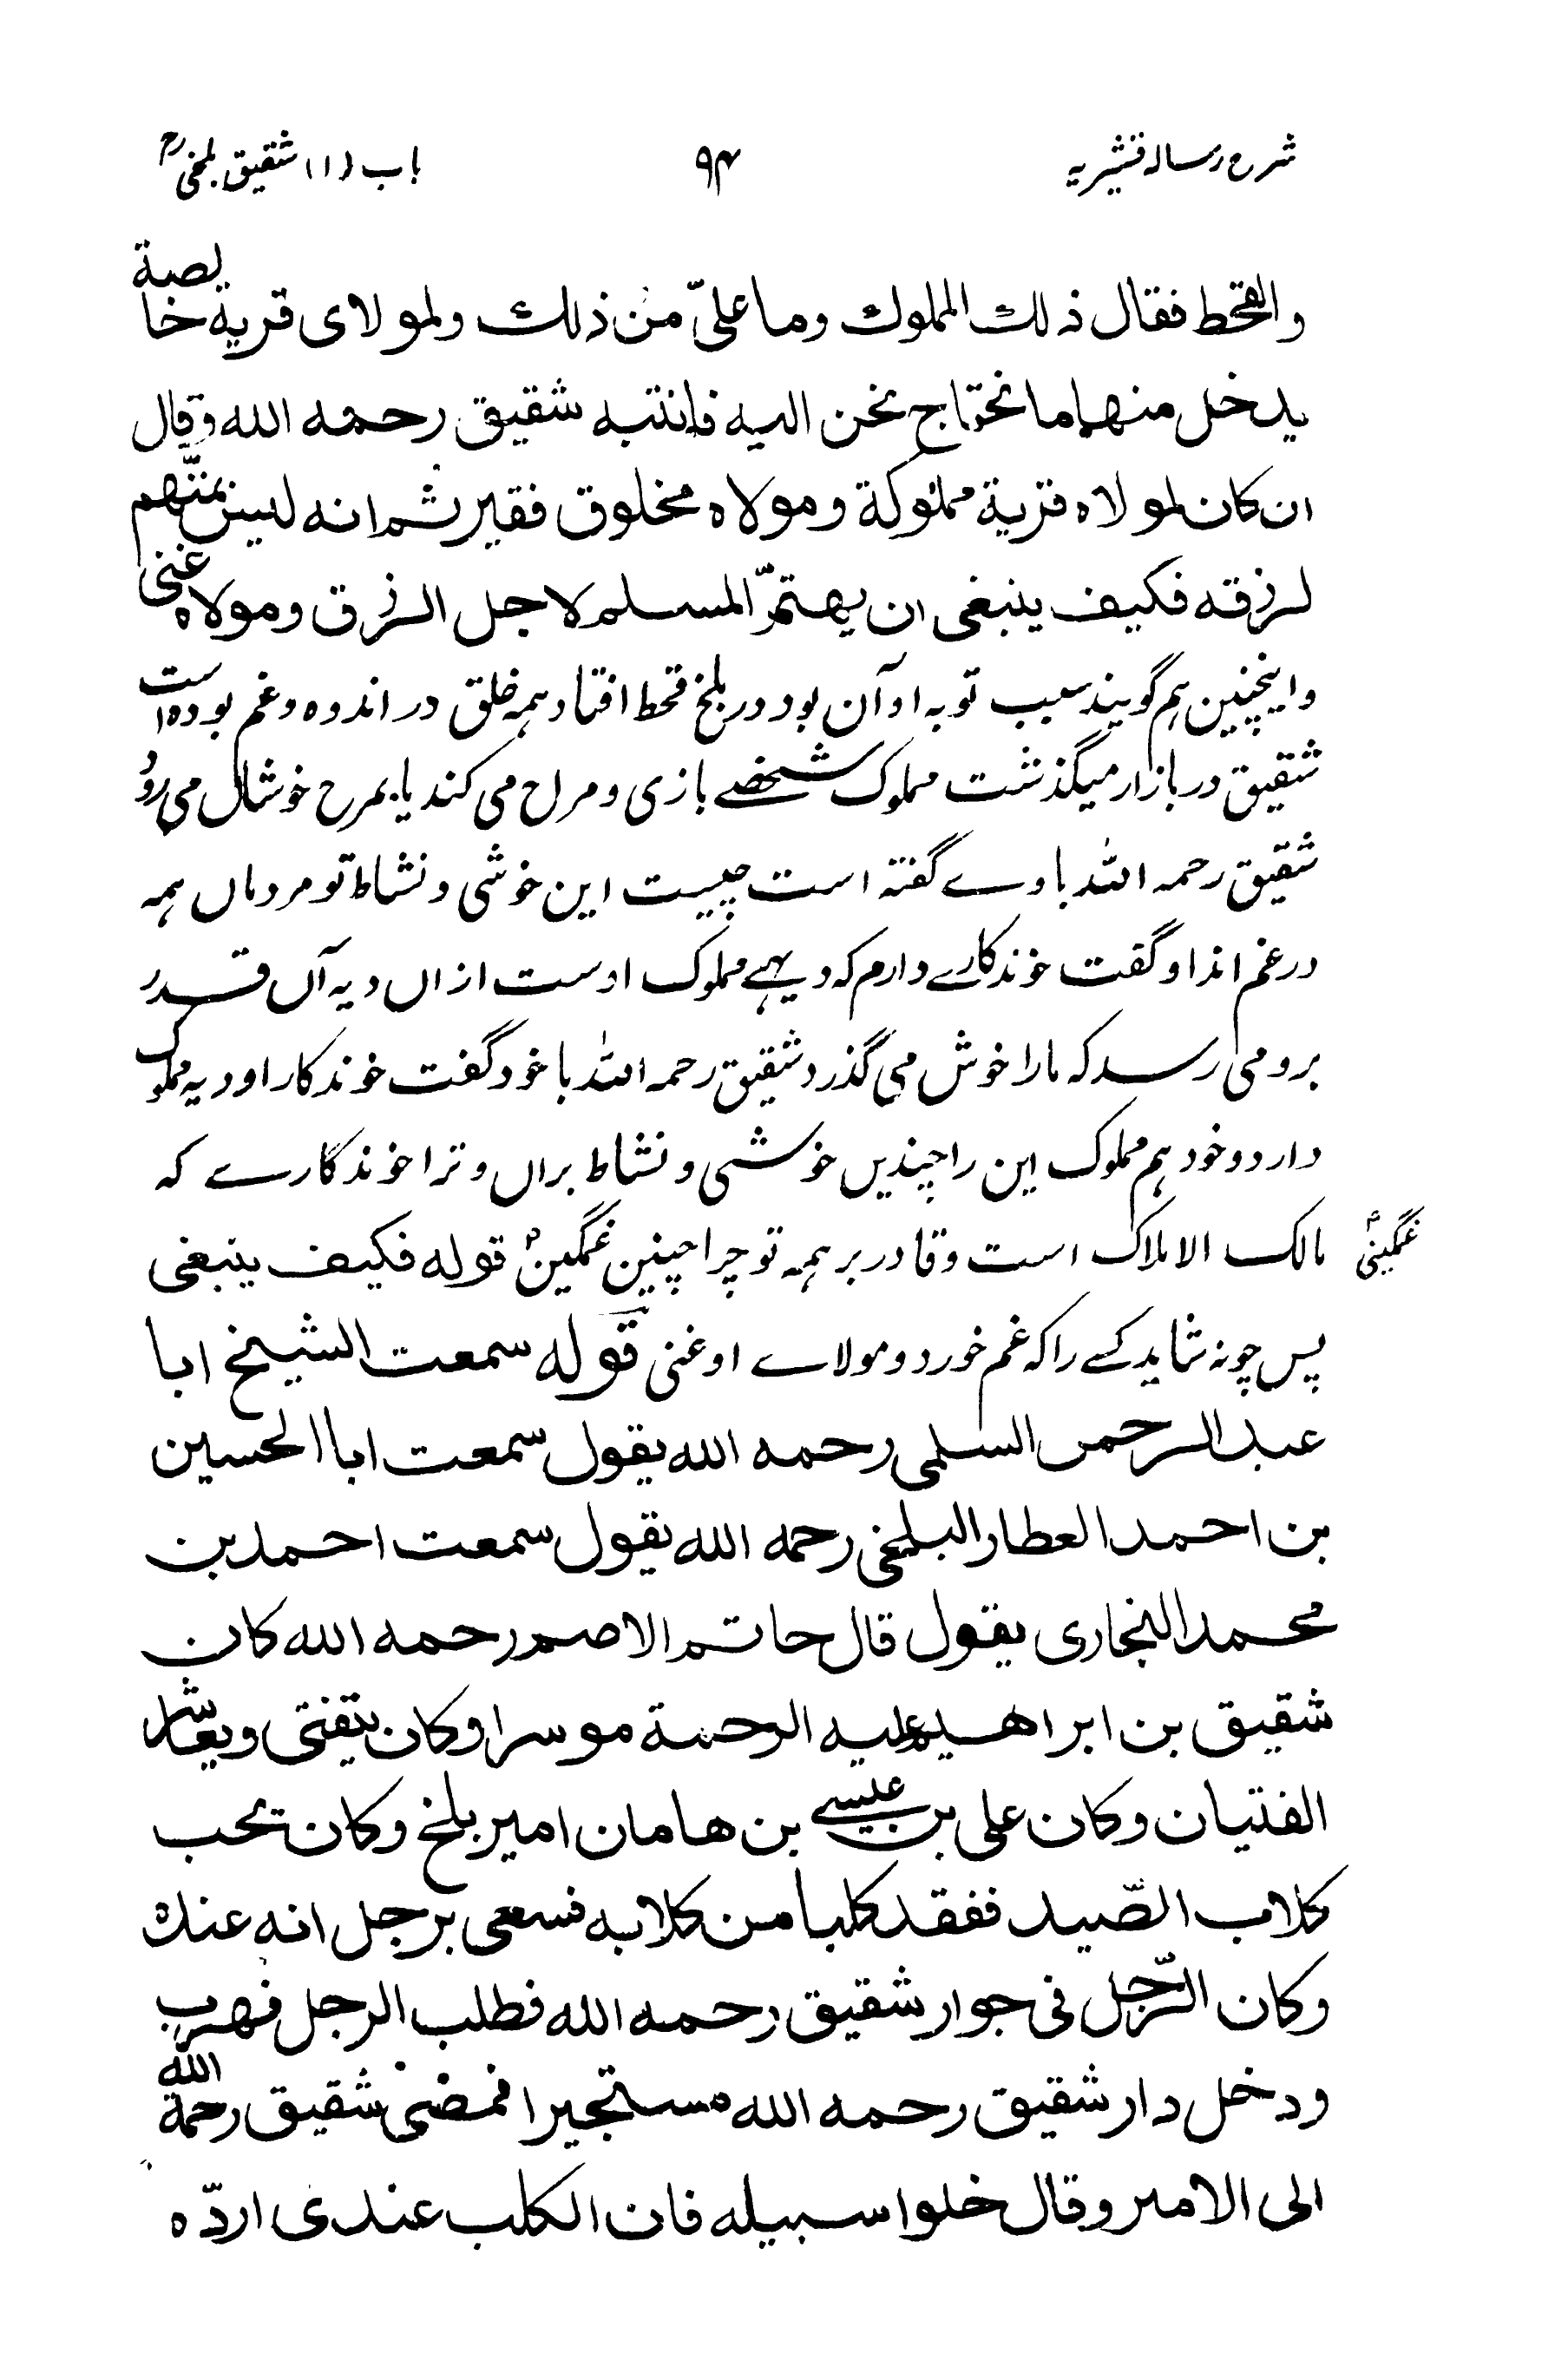 شرح رساله قشیریه ۹۴ باب (۱) شقیق بلخیؒ
والقحط فقال ذلك المملوك وما علیّ من ذلك ولمولای قریة خالصة
یدخل منها ما نحتاج نحن الیه فانتبه شقیق رحمه الله وقال
ان کان لمولاه قریة مملوکة ومولاه مخلوق فقیر ثم انه لیس یهتم
لرزقه فکیف ینبغی ان یهتمّ المسلم لاجل الرزق ومولاه غنی
واینچنین هم گویند سبب توبه او آن بود در بلخ قحط افتاد همه خلق در اندوه وغم بوده است
شقیق در بازار میگذشت مملوک شخصے بازی ومراح می کند یا بمرح خوشال می رود
شقیق رحمه الله باوے گفته است چیست این خوشی ونشاط تو مردماں همه
در غم اند او گفت خوندکارے دارم که دیهے مملوک اوست ازاں دیه آں قدر
برو می رسد که مارا خوش می گذرد شقیق رحمه الله با خود گفت خوندکار او دیه مملوک
دارد وخود هم مملوک این را چندیں خوشی ونشاط براں وترا خوندگارے که
مالک الاملاک است وقادر بر همه تو چرا چنین غمگینؑ قوله فکیف ینبغی
غمگینیؑ
پس چونه شاید کسے را که غم خورد ومولاے او غنی قوله سمعت الشیخ ابا
عبد الرحمن السلمی رحمه الله یقول سمعت ابا الحسین
بن احمد العطار البلخی رحمه الله یقول سمعت احمد بن
محمد البخاری یقول قال حاتم الاصم رحمه الله کان
شقیق بن ابراهیم علیه الرحمة موسرا وکان یتفتی ویعاشر
الفتیان وکان علی بن عیسے بن هامان امیر بلخ وکان یحب
کلاب الصّید ففقد کلبا من کلابه فسعی برجل انه عنده
وکان الرّجل فی جوار شقیق رحمه الله فطلب الرجل فهرب
ودخل دار شقیق رحمه الله مستجیرا فمضی شقیق رحمة الله
الی الامیر وقال خلوا سبیله فان الکلب عندی اردّه